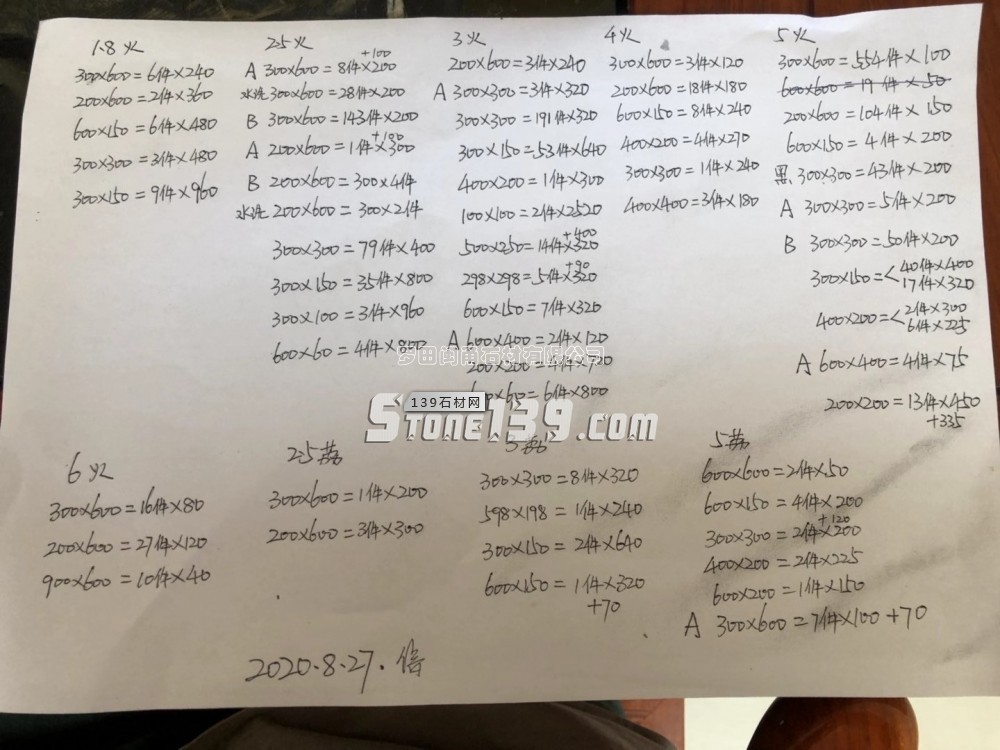 1.8火
300×600=6件×240
200×600=2件×360
600×150=6件×480
300×300=3件×480
300×150=9件×960
2.5火
+100
A 300×600=8件×200
水洗 300×600=28件×200
B 300×600=143件×200
+180
A 200×600=1件×300
B 200×600=300×4件
水洗 200×600=300×2件
300×300=79件×400
300×150=35件×800
300×100=3件×960
600×60=4件×800
3火
200×600=3件×240
A 300×300=3件×320
300×300=191件×320
300×150=53件×640
400×200=1件×300
100×100=2件×2520
+400
500×250=14件×320
+90
298×298=5件×320
600×150=7件×320
A 600×400=2件×120
200×200=4件×720
600×60=6件×800
4火
300×600=3件×120
200×600=18件×180
600×150=8件×240
400×200=4件×270
300×300=1件×240
400×400=3件×180
5火
300×600=554件×100
600×600=19件×50
200×600=104件×150
600×150=4件×200
黑 300×300=43件×200
A 300×300=5件×200
B 300×300=50件×200
300×150=<40件×400
17件×320
400×200=<2件×300
6件×225
A 600×400=4件×75
200×200=13件×450
+335
罗田闽甬石材有限公司
139石材网
STONE139.com
6火
300×600=16件×80
200×600=27件×120
900×600=10件×40
2.5荔
300×600=1件×200
200×600=3件×300
3荔
300×300=8件×320
598×198=1件×240
300×150=2件×640
600×150=1件×320
+70
5荔
600×600=2件×50
600×150=4件×200
+120
300×300=2件×200
400×200=2件×225
600×200=1件×150
A 300×600=7件×100+70
2020.8.27.